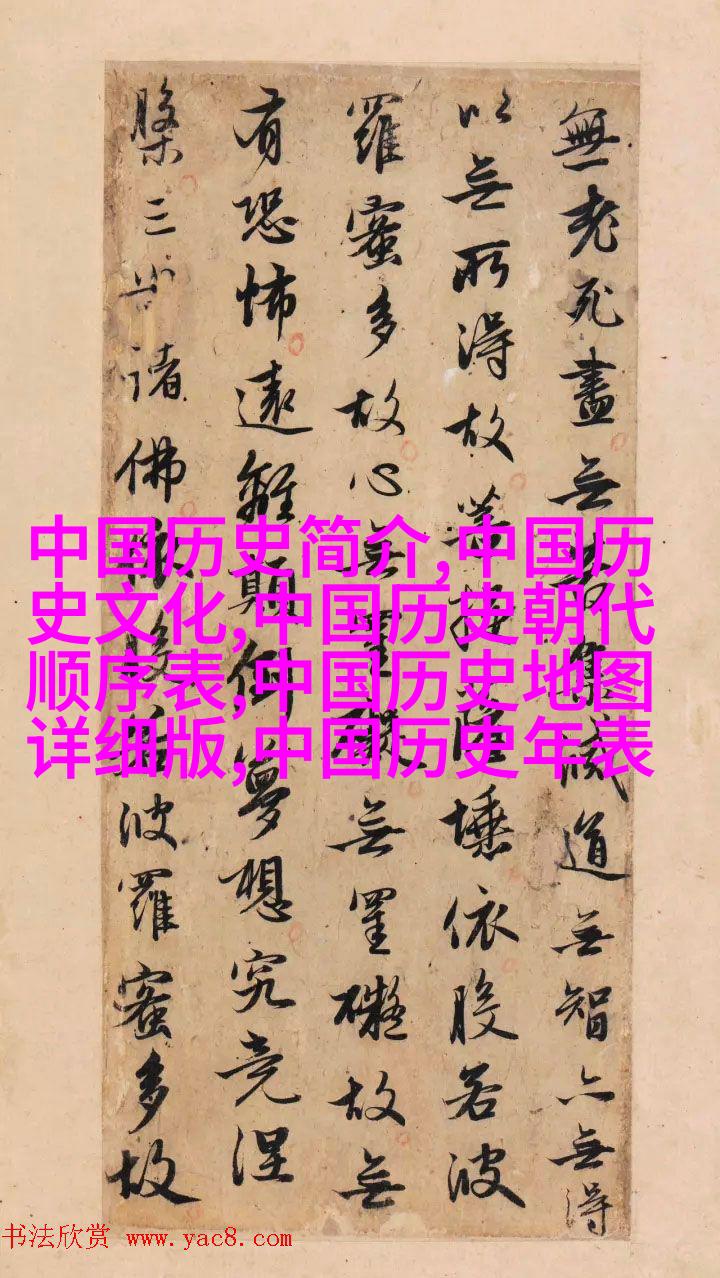 無老死盡无苦集滅道无智亦無得
以无所得故菩提薩埵依般若波
羅蜜多故心无罣礙无罣礙故无
有恐怖遠離顛倒夢想究竟涅
槃三世諸佛依般若波羅蜜多故
中国历史简介,中国历
史文化,中国历史朝代
顺序表,中国历史地图
详细版,中国历史年表
书法欣赏 www.yac8.com